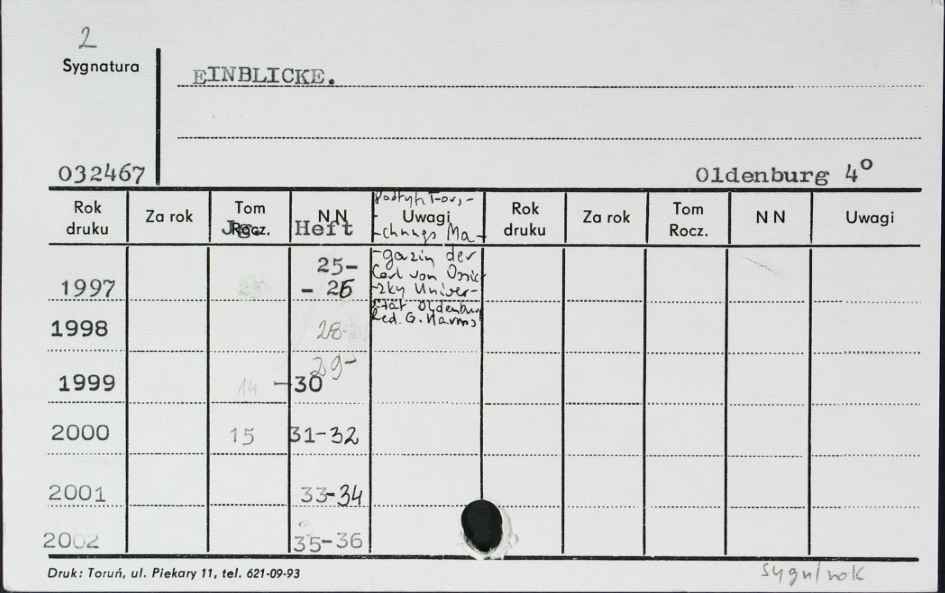 2
Sygnatura
EINBLICKE.
032467
Oldenburg 4°
Rok druku Za rok Tom Rocz. NN Uwagi Rok druku Za rok Tom Rocz. NN Uwagi
Jg. Heft
-chungs Ma-
-gazin der
Carl von Ossie-
-zky Univer-
sität Oldenburg
Red. G. Harms
1997 25-
- 26
1998 28-
1999 14 29-
-30
2000 15 31-32
2001 33-34
2002 35-36
Druk: Toruń, ul. Piekary 11, tel. 621-09-93
sygn/rok